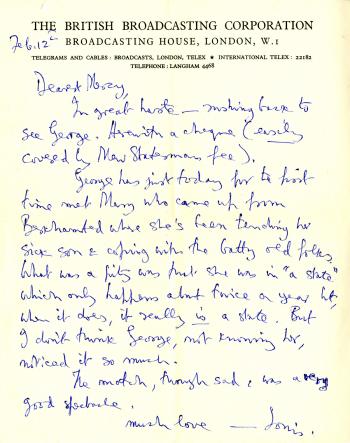 THE BRITISH BROADCASTING CORPORATION
BROADCASTING HOUSE, LONDON, W.1
TELEGRAMS AND CABLES: BROADCASTS, LONDON, TELEX ★ INTERNATIONAL TELEX: 22182
TELEPHONE: LANGHAM 4468
Feb. 12th
Dearest Mercy,
In great haste — rushing back to
see George. Herewith a cheque (easily
covered by New Statesman fee).
George has just today for the first
time met Mary who came up from
Berkhamsted where she's been tending her
sick son & coping with the batty old folks.
What a pity was that she was in "a state"
which only happens about twice a year but,
when it does, it really is a state. But
I don't think George, not knowing her,
noticed it so much.
The match, though sad, was a very
good spectacle.
much love — Louis.